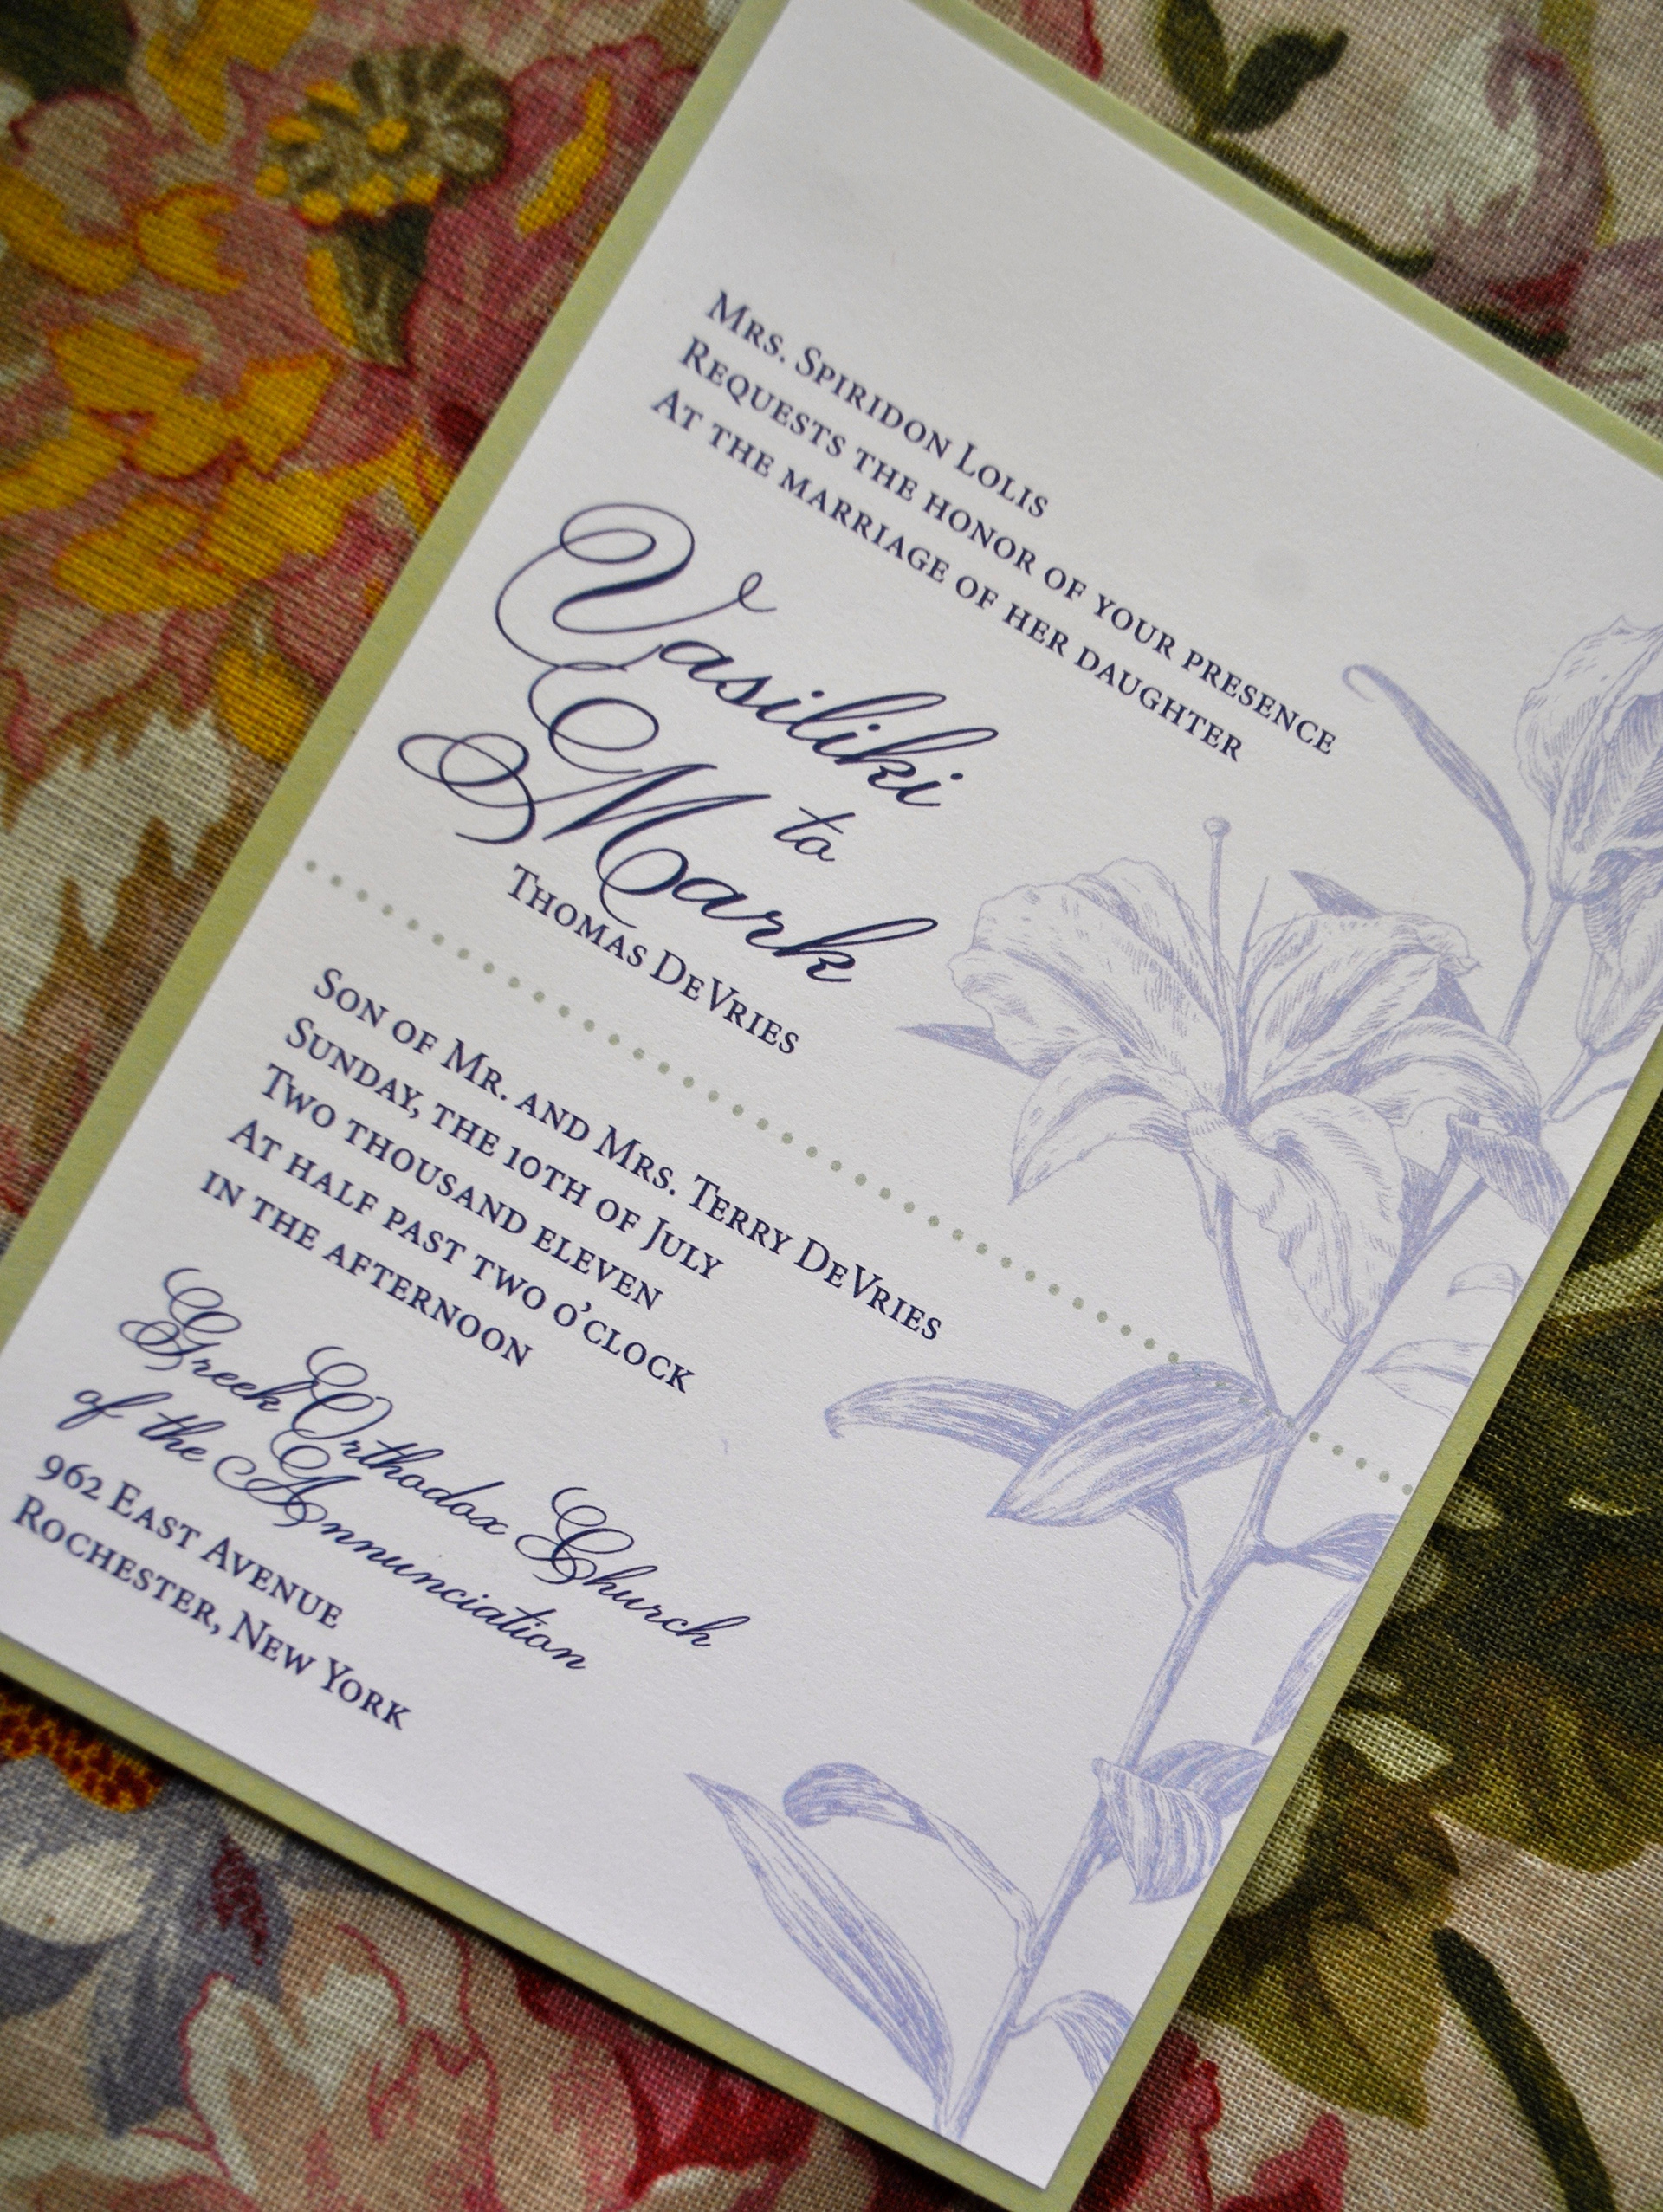 Mrs. Spiridon Lolis
Requests the honor of your presence
At the marriage of her daughter
Vasiliki
to
Mark
Thomas DeVries
Son of Mr. and Mrs. Terry DeVries
Sunday, the 10th of July
Two thousand eleven
At half past two o'clock
in the afternoon
Greek Orthodox Church
of the Annunciation
962 East Avenue
Rochester, New York